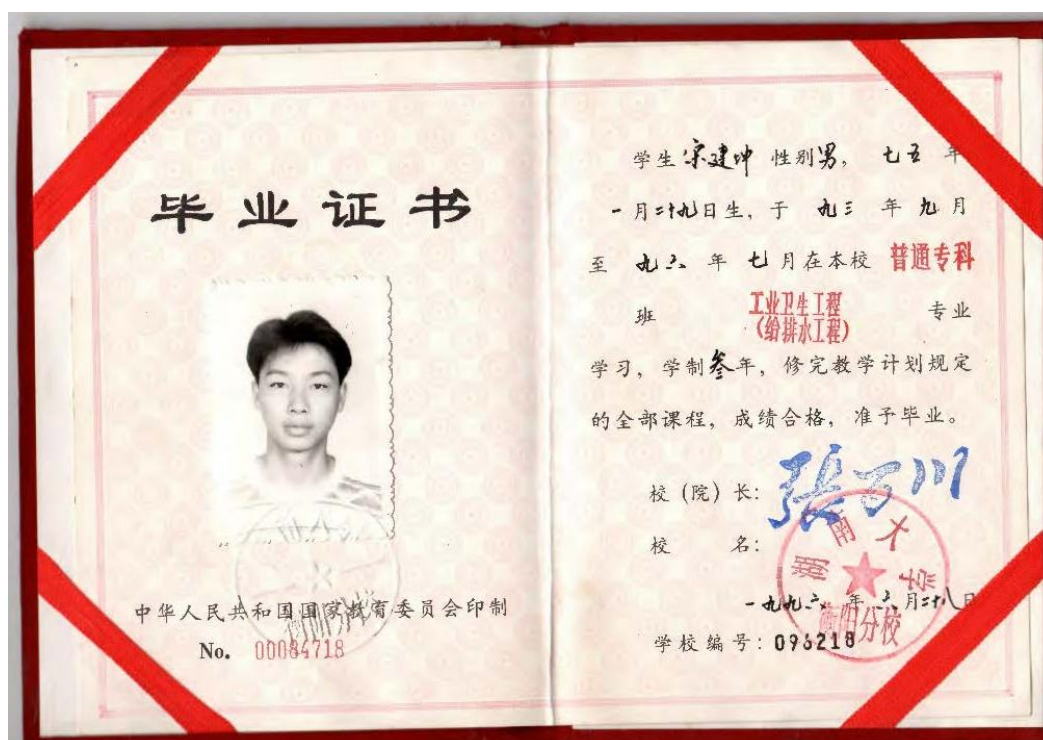 毕业证书
中华人民共和国国家教育委员会印制
No. 00084718
学生宋建坤 性别男， 七五 年
一月二十九日生，于 九三 年 九月
至 九六 年 七月在本校 普通专科
班 工业卫生工程 专业
(给排水工程)
学习，学制叁年，修完教学计划规定
的全部课程，成绩合格，准予毕业。
校（院）长：张百川
校 名：
湖南大学
衡阳分校
一九九六 年 六月二十八日
学校编号：096218
衡阳分校